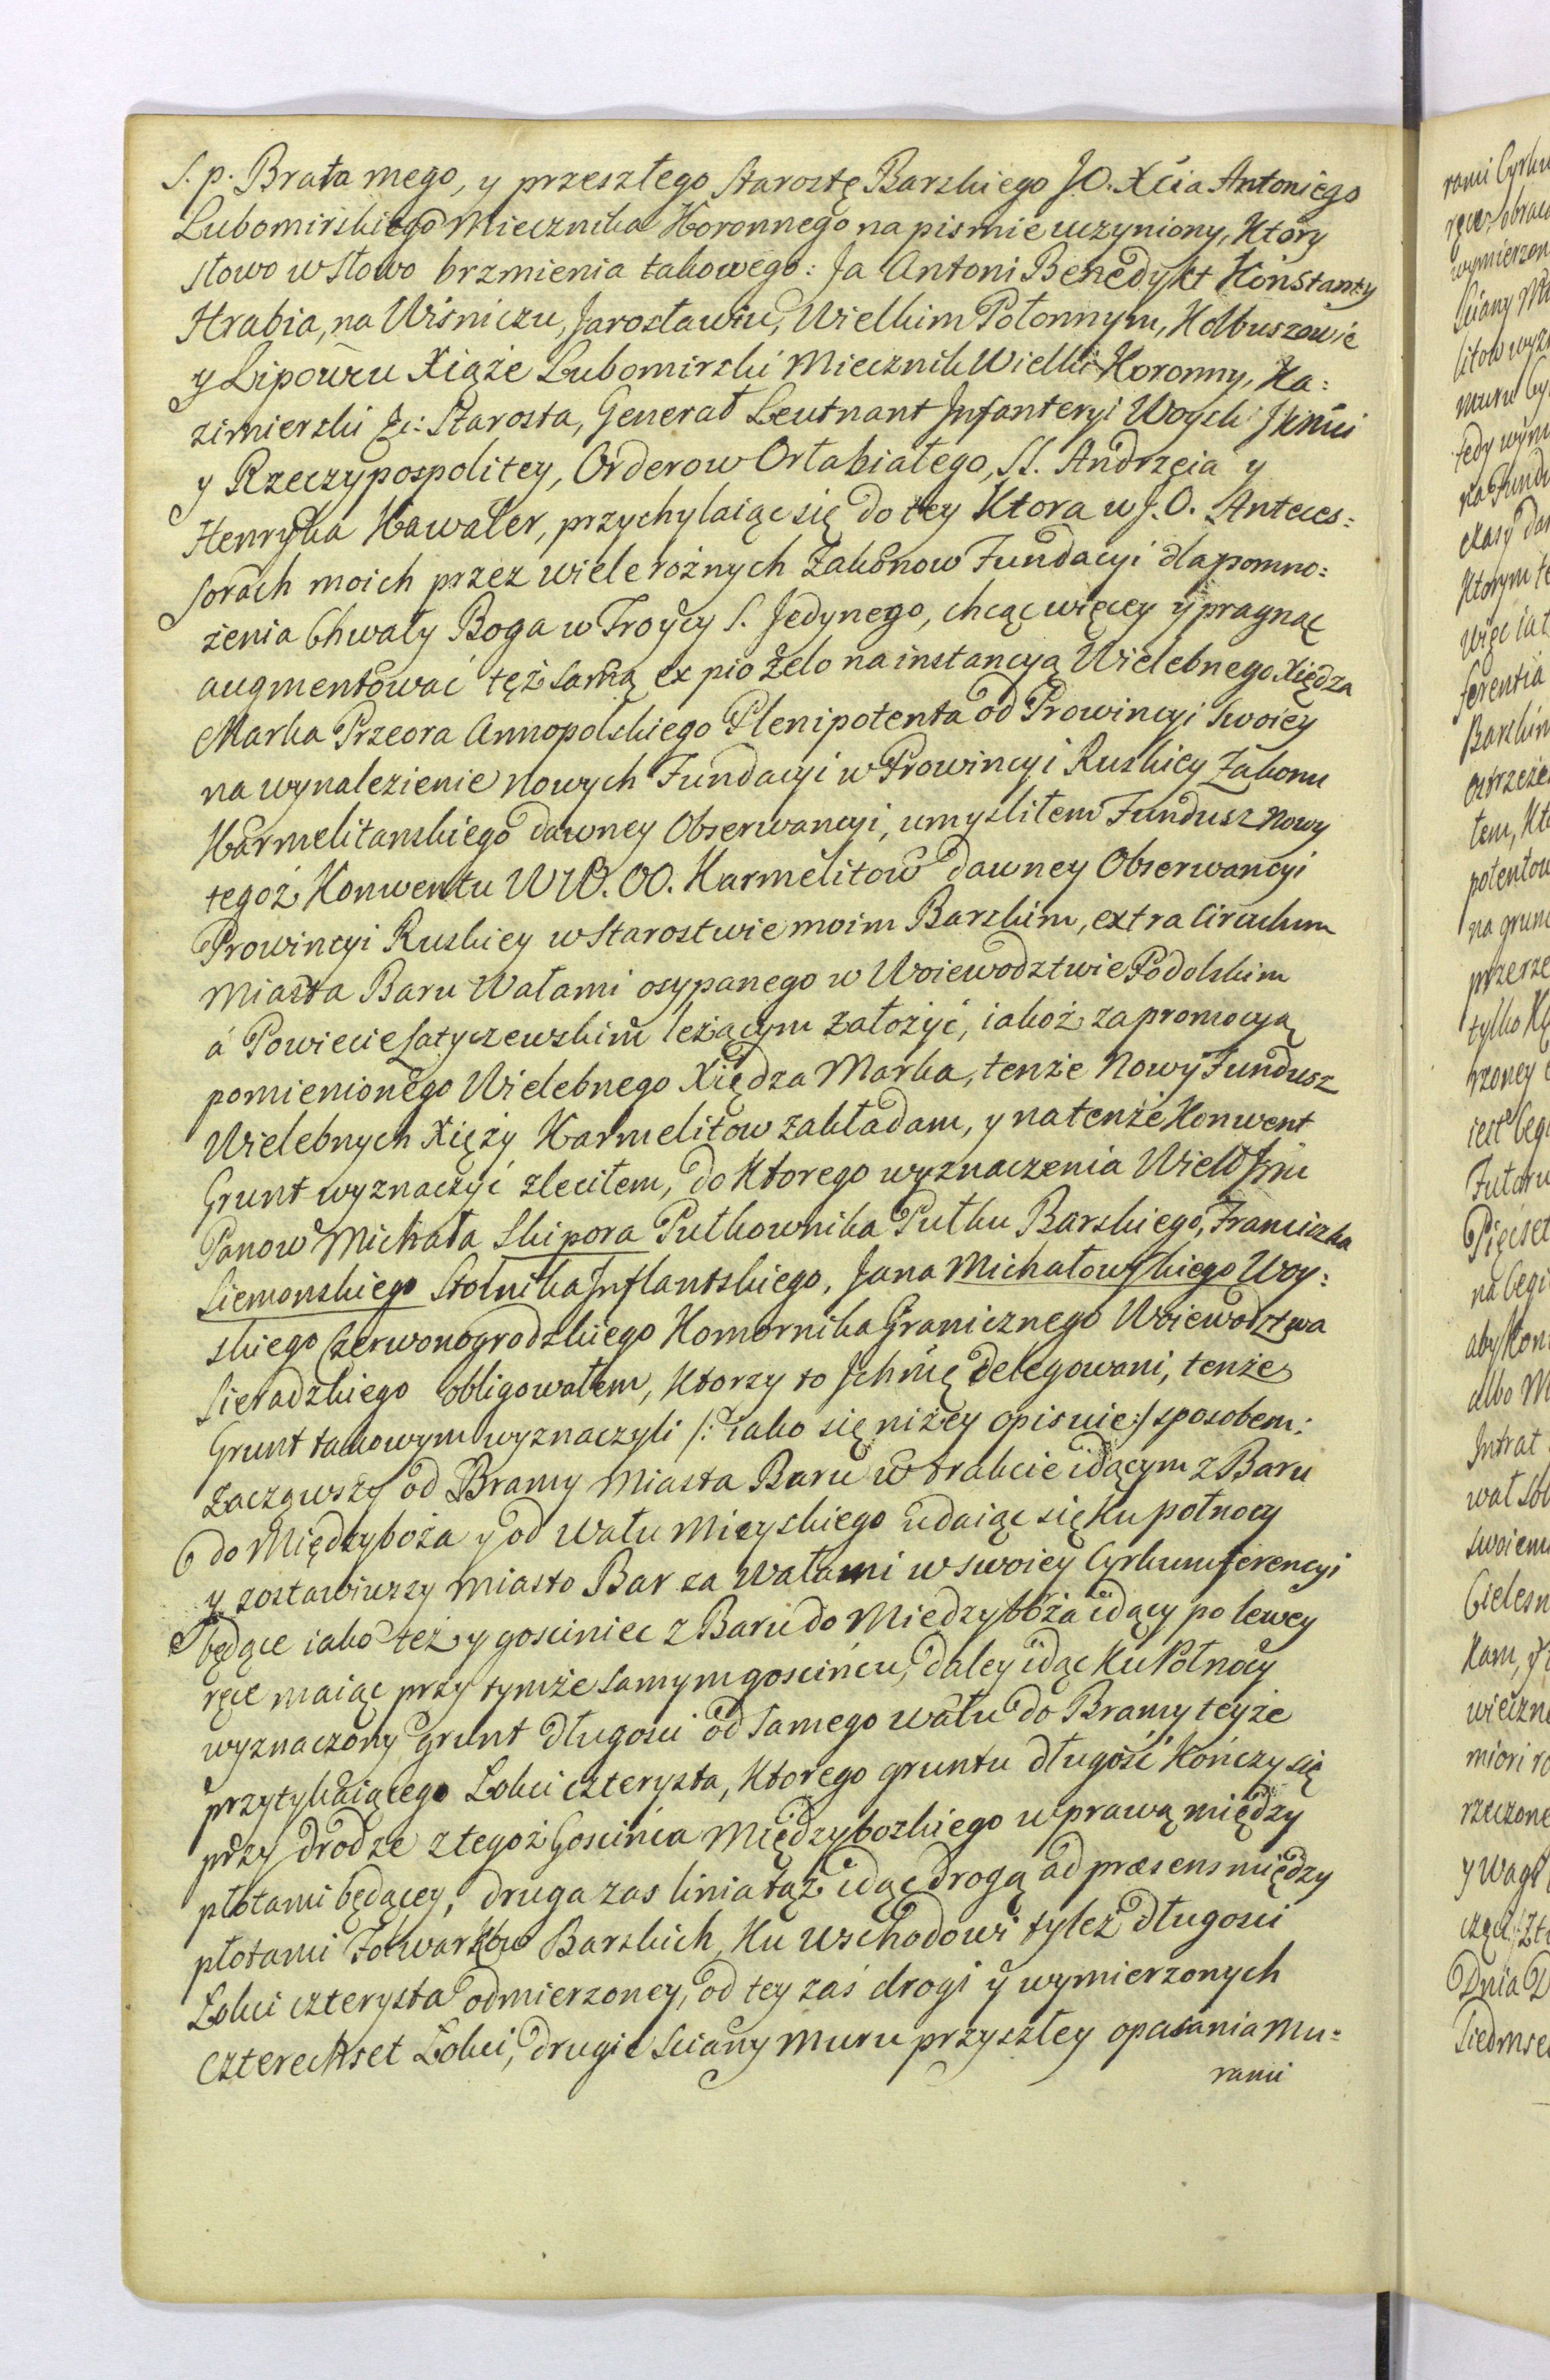 S. p. Brata mego, y przeszłego Starostę Barskiego JO. Xcia Antoniego
Lubomirskiego Miecznika Koronnego na pismie uczyniony, Ktory
słowo w słowo brzmienia takowego: Ja Antoni Benedykt Konstanty
Hrabia, na Wiśniczu, Jarosławiu, Wielkim Połonnym, Kolbuszowie
y Lipowcu Xiąże Lubomirski Miecznik Wielki Koronny, Ka:
zimierski &c: Starosta, Generał Leutnant Infanteryi Woysk JKMci
y Rzeczypospolitey, Orderow Orła białego, SS. Andrzeia y
Henryka Kawaler, przychylaiąc się do tey Ktora w J.O. Anteces:
sorach moich przez wiele rożnych Zakonow Fundacyi dla pomno:
żenia Chwały Boga w Troycy S. Jedynego, chcąc więcey y pragnąc
augmentować tęż samą ex pio Zelo na instancyą Wielebnego Xiędza
Marka Przeora Annopolskiego Plenipotenta od Prowincyi swoiey
na wynalezienie nowych Fundacyi w Prowincyi Ruskiey Zakonu
Karmelitanskiego dawney Obserwancyi, umysliłem Fundusz nowy
tegoż Konwentu WW. OO. Karmelitow dawney Obserwancyi
Prowincyi Ruskiey w Starostwie moim Barskim, extra Circulum
Miasta Baru Wałami osypanego w Woiewodztwie Podolskim
á Powiecie Latyczewskim leżącym założyć, iakoż za promocyą
pomienionego Wielebnego Xiędza Marka, tenże Nowy Fundusz
Wielebnych Xięży Karmelitow zakładam, y na tenże Konwent
Grunt wyznaczyć zleciłem, do Ktorego wyznaczenia Wiel
Panow Michała Skipora Pułkownika Pułku Barskiego, Franciszka
Siemonskiego Stolnika Inflantskiego, Jana Michałowskiego Woy:
skiego Czerwonogrodzkiego Komornika Granicznego Woiewodztwa
Sieradzkiego obligowałem, Ktorzy to Ichmę delegowani, tenże
Grunt takowym wyznaczyli /: iako się niżey opisuie :/ sposobem:
Zacząwszy od Bramy Miasta Baru w trakcie idącym z Baru
do Międzyboża y od Wału Mieyskiego udaiąc się Ku połnocy
y zostawiwszy Miasto Bar za Wałami w swoiey Cyrkumferencyi
będące iako też y gosciniec z Baru do Miedzyboża idący po lewey
ręce maiąc przy tymże samym gosciń́cu, daley idąc Ku Połnocy
wyznaczony grunt długosci od samego wału do Bramy teyże
przytykaiącego Łokci czterysta, Ktorego gruntu długość Kończy się
przy drodze z tegoż Gościńca Międzybozkiego w prawą między
płotami będącey, druga zas linia taż idąc drogą ad præsens między
płotami Folwarkow Barskich, Ku Wschodowi tyleż długosci
Łokci czterysta odmierzoney, od tey zaś drogi y wymierzonych
czterechset Łokci, drugie Sciany Muru przyszłey opasania Mu:
rami